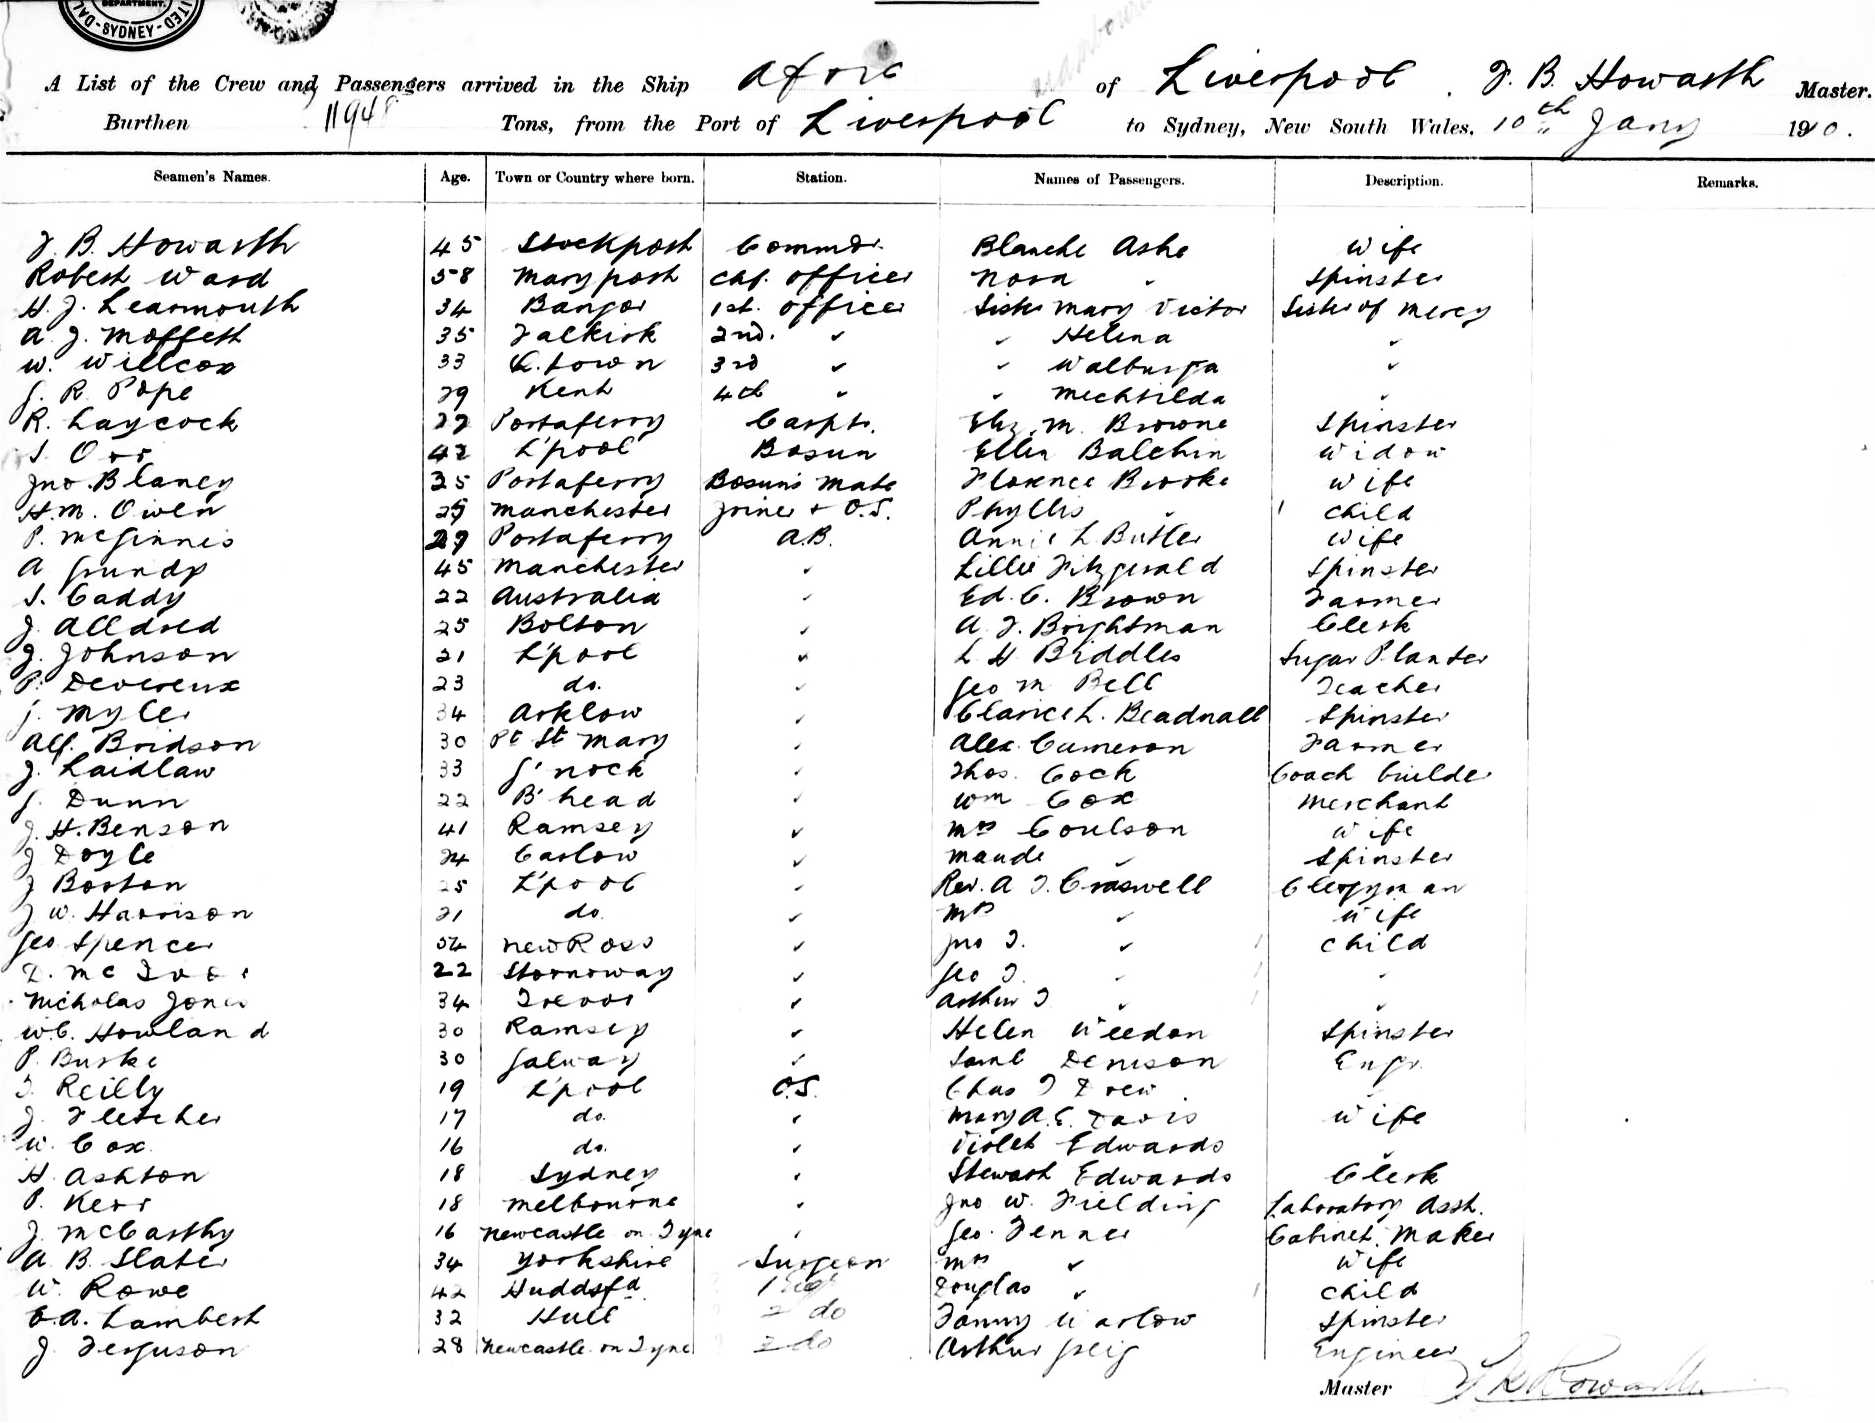 DEPARTMENT.
SYDNEY
A List of the Crew and Passengers arrived in the Ship Afric of Liverpool. F. B. Howarth Master.
Burthen 11948 Tons, from the Port of Liverpool to Sydney, New South Wales, 10th Jany 1910.
Seamen's Names. Age. Town or Country where born. Station. Names of Passengers. Description. Remarks.
F. B. Howarth 45 Stockport Commdr. Blanche Ashe Wife
Robert Ward 58 Maryport Chf. Officer Nora " Spinster
H. J. Learmouth 34 Bangor 1st. Officer Sister Mary Victor Sister of Mercy
A. J. Moffett 35 Falkirk 2nd. " " Helena "
W. Willcox 33 Q.town 3rd " " Walburga "
G. R. Pope 29 Kent 4th " " Mechtilda "
R. Laycock 27 Portaferry Carptr. Eliz. M. Browne Spinster
S. Orr 42 L'pool Bosun Ellen Balchin Widow
Jno. Blaney 25 Portaferry Bosun's Mate Florence Brooke Wife
H. M. Owen 25 Manchester Joiner + O.S. Phyllis " 1 Child
P. McGinnis 27 Portaferry A.B. Annie L Butler Wife
A Grundy 45 Manchester " Lillie Fitzgerald Spinster
S. Caddy 22 Australia " Ed. C. Brown Farmer
J. Alldred 25 Bolton " A. F. Brightman Clerk
J. Johnson 21 L'pool " L H Biddles Sugar Planter
P. Devereux 23 do. " Geo M Bell Teacher
J. Myler 34 Arklow " Clarice L. Beadnall Spinster
Alf. Bridson 30 Pt St Mary " Alex. Cameron Farmer
J. Laidlaw 33 G'nock " Thos. Cock Coach Builder
G. Dunn 22 B'head " Wm Cox Merchant
J. H. Benson 41 Ramsey " Mrs Coulson Wife
J Doyle 24 Carlow " Maude " Spinster
J Boston 25 L'pool " Rev. A T. Craswell Clergyman
J W. Harrison 21 do. " Mrs " Wife
Geo Spencer 54 New Ross " Jno T. " 1 Child
22 Stornoway " Geo T. " 1 "
Nicholas Jones 34 Trevor " Arthur T " 1 "
W.C. Howland 30 Ramsey " Helen Weedon Spinster
P. Burke 30 Galway " Saml Denison Engr.
T. Reilly 19 L'pool O.S. Chas T Drew "
J. Fletcher 17 do. " Mary A. E. Davis Wife
W. Cox 16 do. " Violet Edwards "
H. Ashton 18 Sydney " Stewart Edwards Clerk
P. Kerr 18 Melbourne " Jno W. Fielding Laboratory Asst.
J. McCarthy 16 Newcastle on Tyne " Geo. Fenner Cabinet Maker
A. B. Slater 34 Yorkshire Surgeon Mrs " Wife
W. Rowe 42 Huddsfd Douglas " 1 Child
E. A. Lambert 32 Hull 2 do Fanny Warlow Spinster
J. Ferguson 28 Newcastle on Tyne 2 do Arthur Greig Engineer
Master F B Howarth